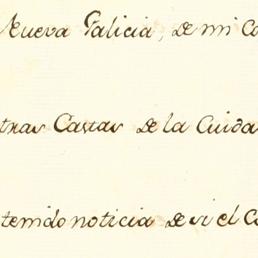 Nueva Galicia, de mi Co
tras Cartas de la Cuida
tenido noticia de si el C